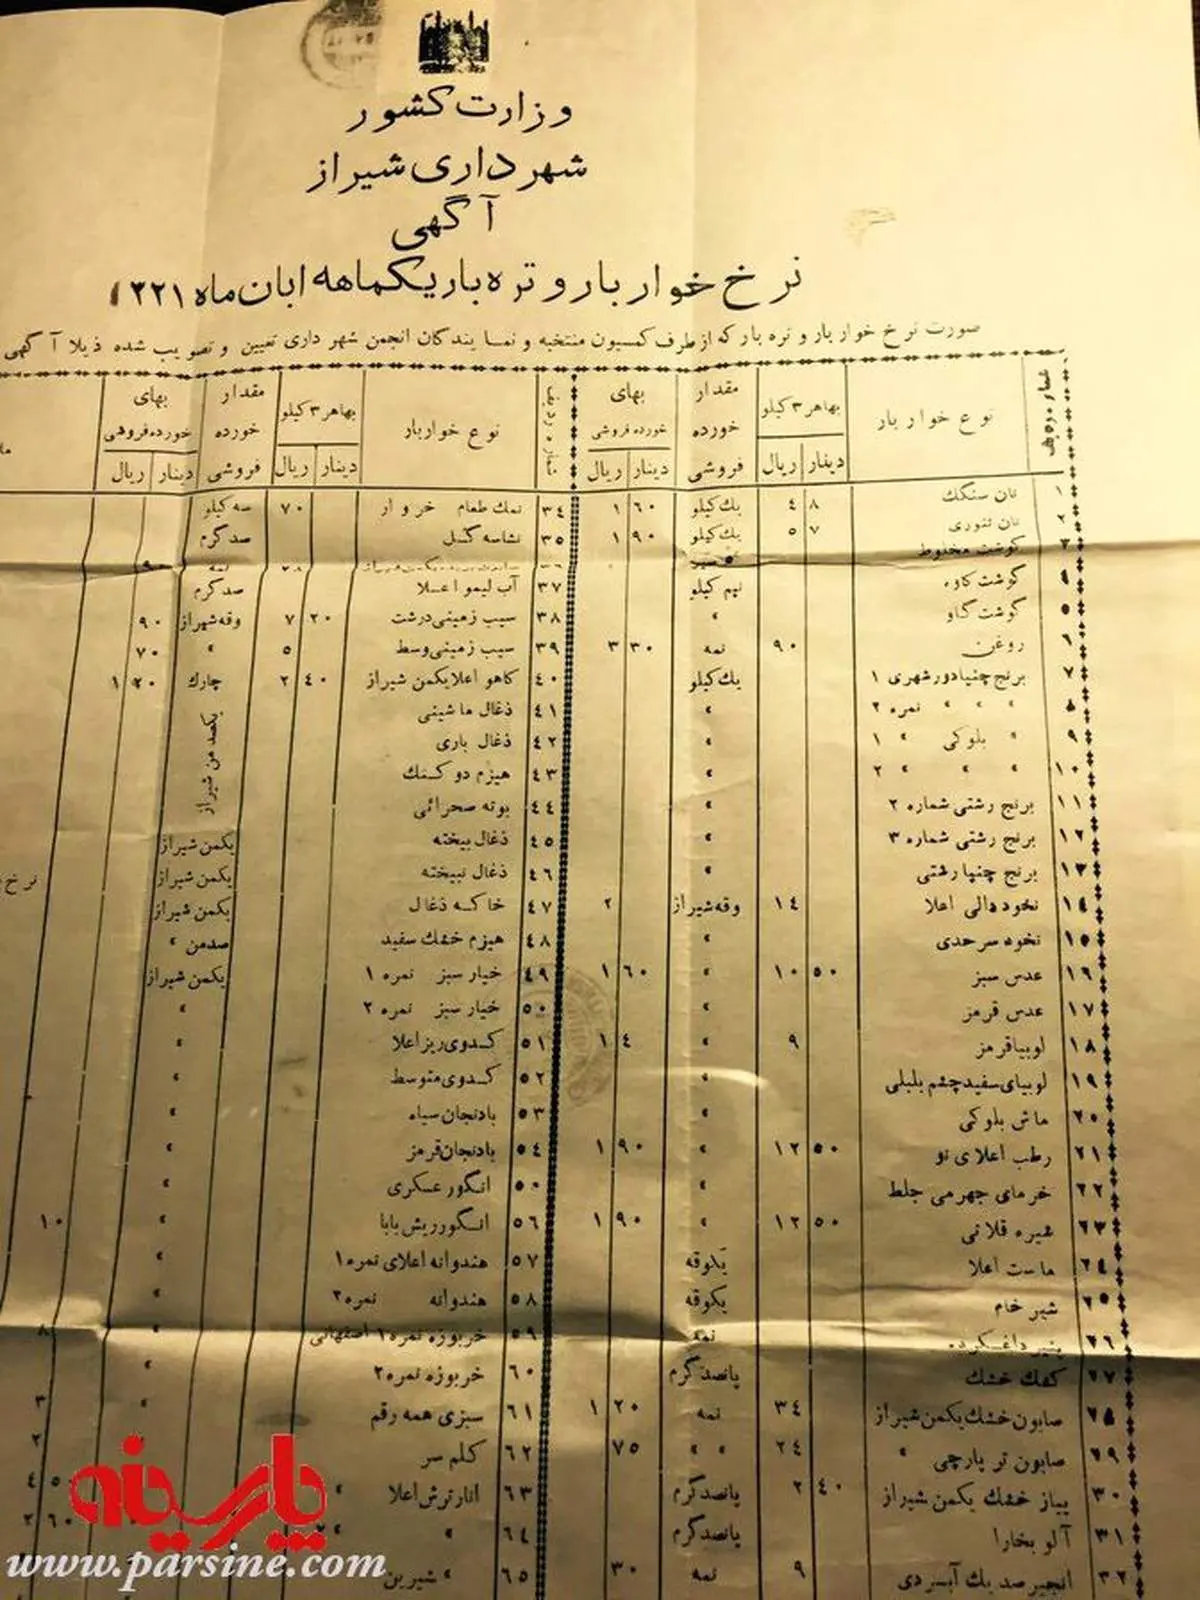 وزارت کشور
شهرداری شیراز
آگهی
نرخ خواربار و تره‌بار یکماهه ابان ماه ۱۳۲۱
صورت نرخ خوار بار و تره بار که از طرف کمسیون منتخبه و نمایندگان انجمن شهرداری تعیین و تصویب شده ذیلا آگهی
نوع خوار بار بهاهر ۳ کیلو دینار ریال مقدار خورده فروشی بهای خورده فروشی دینار ریال
۱ نان سنگك ۸ ۴ یك کیلو ۶۰ ۱
۲ نان تنوری ۷ ۵ یك کیلو ۹۰ ۱
۳ گوشت مخلوط
۴ گوشت کاوه نیم کیلو
۵ گوشت گاو »
۶ روغن ۹۰ نمه ۳۰ ۳
۷ برنج چنپا دور شهری ۱ یك کیلو
۸ » » » نمره ۲ »
۹ » بلوکی » ۱ »
۱۰ » » » ۲ »
۱۱ برنج رشتی شماره ۲ »
۱۲ برنج رشتی شماره ۳ »
۱۳ برنج چنپا رشتی »
۱۴ نخود دالی اعلا ۱۴ وقه شیراز ۲
۱۵ نخود سرحدی »
۱۶ عدس سبز ۵۰ ۱۰ » ۶۰ ۱
۱۷ عدس قرمز »
۱۸ لوبیا قرمز ۹ » ۴ ۱
۱۹ لوبیای سفید چشم بلبلی »
۲۰ ماش بلوکی »
۲۱ رطب اعلای نو ۵۰ ۱۲ » ۹۰ ۱
۲۲ خرمای جهرمی جلط »
۲۳ شیره قلاتی ۵۰ ۱۲ » ۹۰ ۱
۲۴ ماست اعلا یکوقه
۲۵ شیر خام یکوقه
۲۶ پنیر داغکرده نمه
۲۷ کفك خشك پانصد گرم
۲۸ صابون خشك یکمن شیراز ۳۴ نمه ۲۰ ۱
۲۹ صابون تر پارچی » ۲۴ » » ۷۵
۳۰ پیاز خشك یکمن شیراز ۴۰ ۲ پانصد گرم
۳۱ آلو بخارا پانصد گرم
۳۲ انجیر صد یك آبسردی ۹ نمه ۳۰
نوع خواربار بهاهر ۳ کیلو دینار ریال مقدار خورده فروشی بهای خورده فروشی دینار ریال
۳۴ نمك طعام خر و ار ۷۰ سه کیلو
۳۵ نشاسه گل صد گرم
۳۷ آب لیمو اعلا صد گرم
۳۸ سیب زمینی درشت ۲۰ ۷ وقه شیراز ۹۰
۳۹ سیب زمینی وسط ۵ » ۷۰
۴۰ کاهو اعلا یکمن شیراز ۴۰ ۲ چارك ۲۰ ۱
یکصد من شیراز
۴۱ ذغال ماشینی
۴۲ ذغال باری
۴۳ هیزم دو کتك
۴۴ بوته صحرائی
۴۵ ذغال بیخته یکمن شیراز
۴۶ ذغال نبیخته یکمن شیراز
۴۷ خاکه ذغال یکمن شیراز
۴۸ هیزم خشك سفید صدمن »
۴۹ خیار سبز نمره ۱ یکمن شیراز
۵۰ خیار سبز نمره ۲ »
۵۱ کدوی ریز اعلا »
۵۲ کدوی متوسط »
۵۳ بادنجان سیاه »
۵۴ بادنجان قرمز »
۵۵ انگور عسکری »
۵۶ انگور ریش بابا »
۵۷ هندوانه اعلای نمره ۱ »
۵۸ هندوانه نمره ۲ »
۵۹ خربوزه نمره ۱ اصفهانی »
۶۰ خربوزه نمره ۲ »
۶۱ سبزی همه رقم »
۶۲ کلم سر
۶۳ انار ترش اعلا »
۶۴ »
۶۵ » شیرین
نرخ
۱۰
۸
۳
۲
۵۰ ۴
۶۰ ۲
پارسینه
www.parsine.com